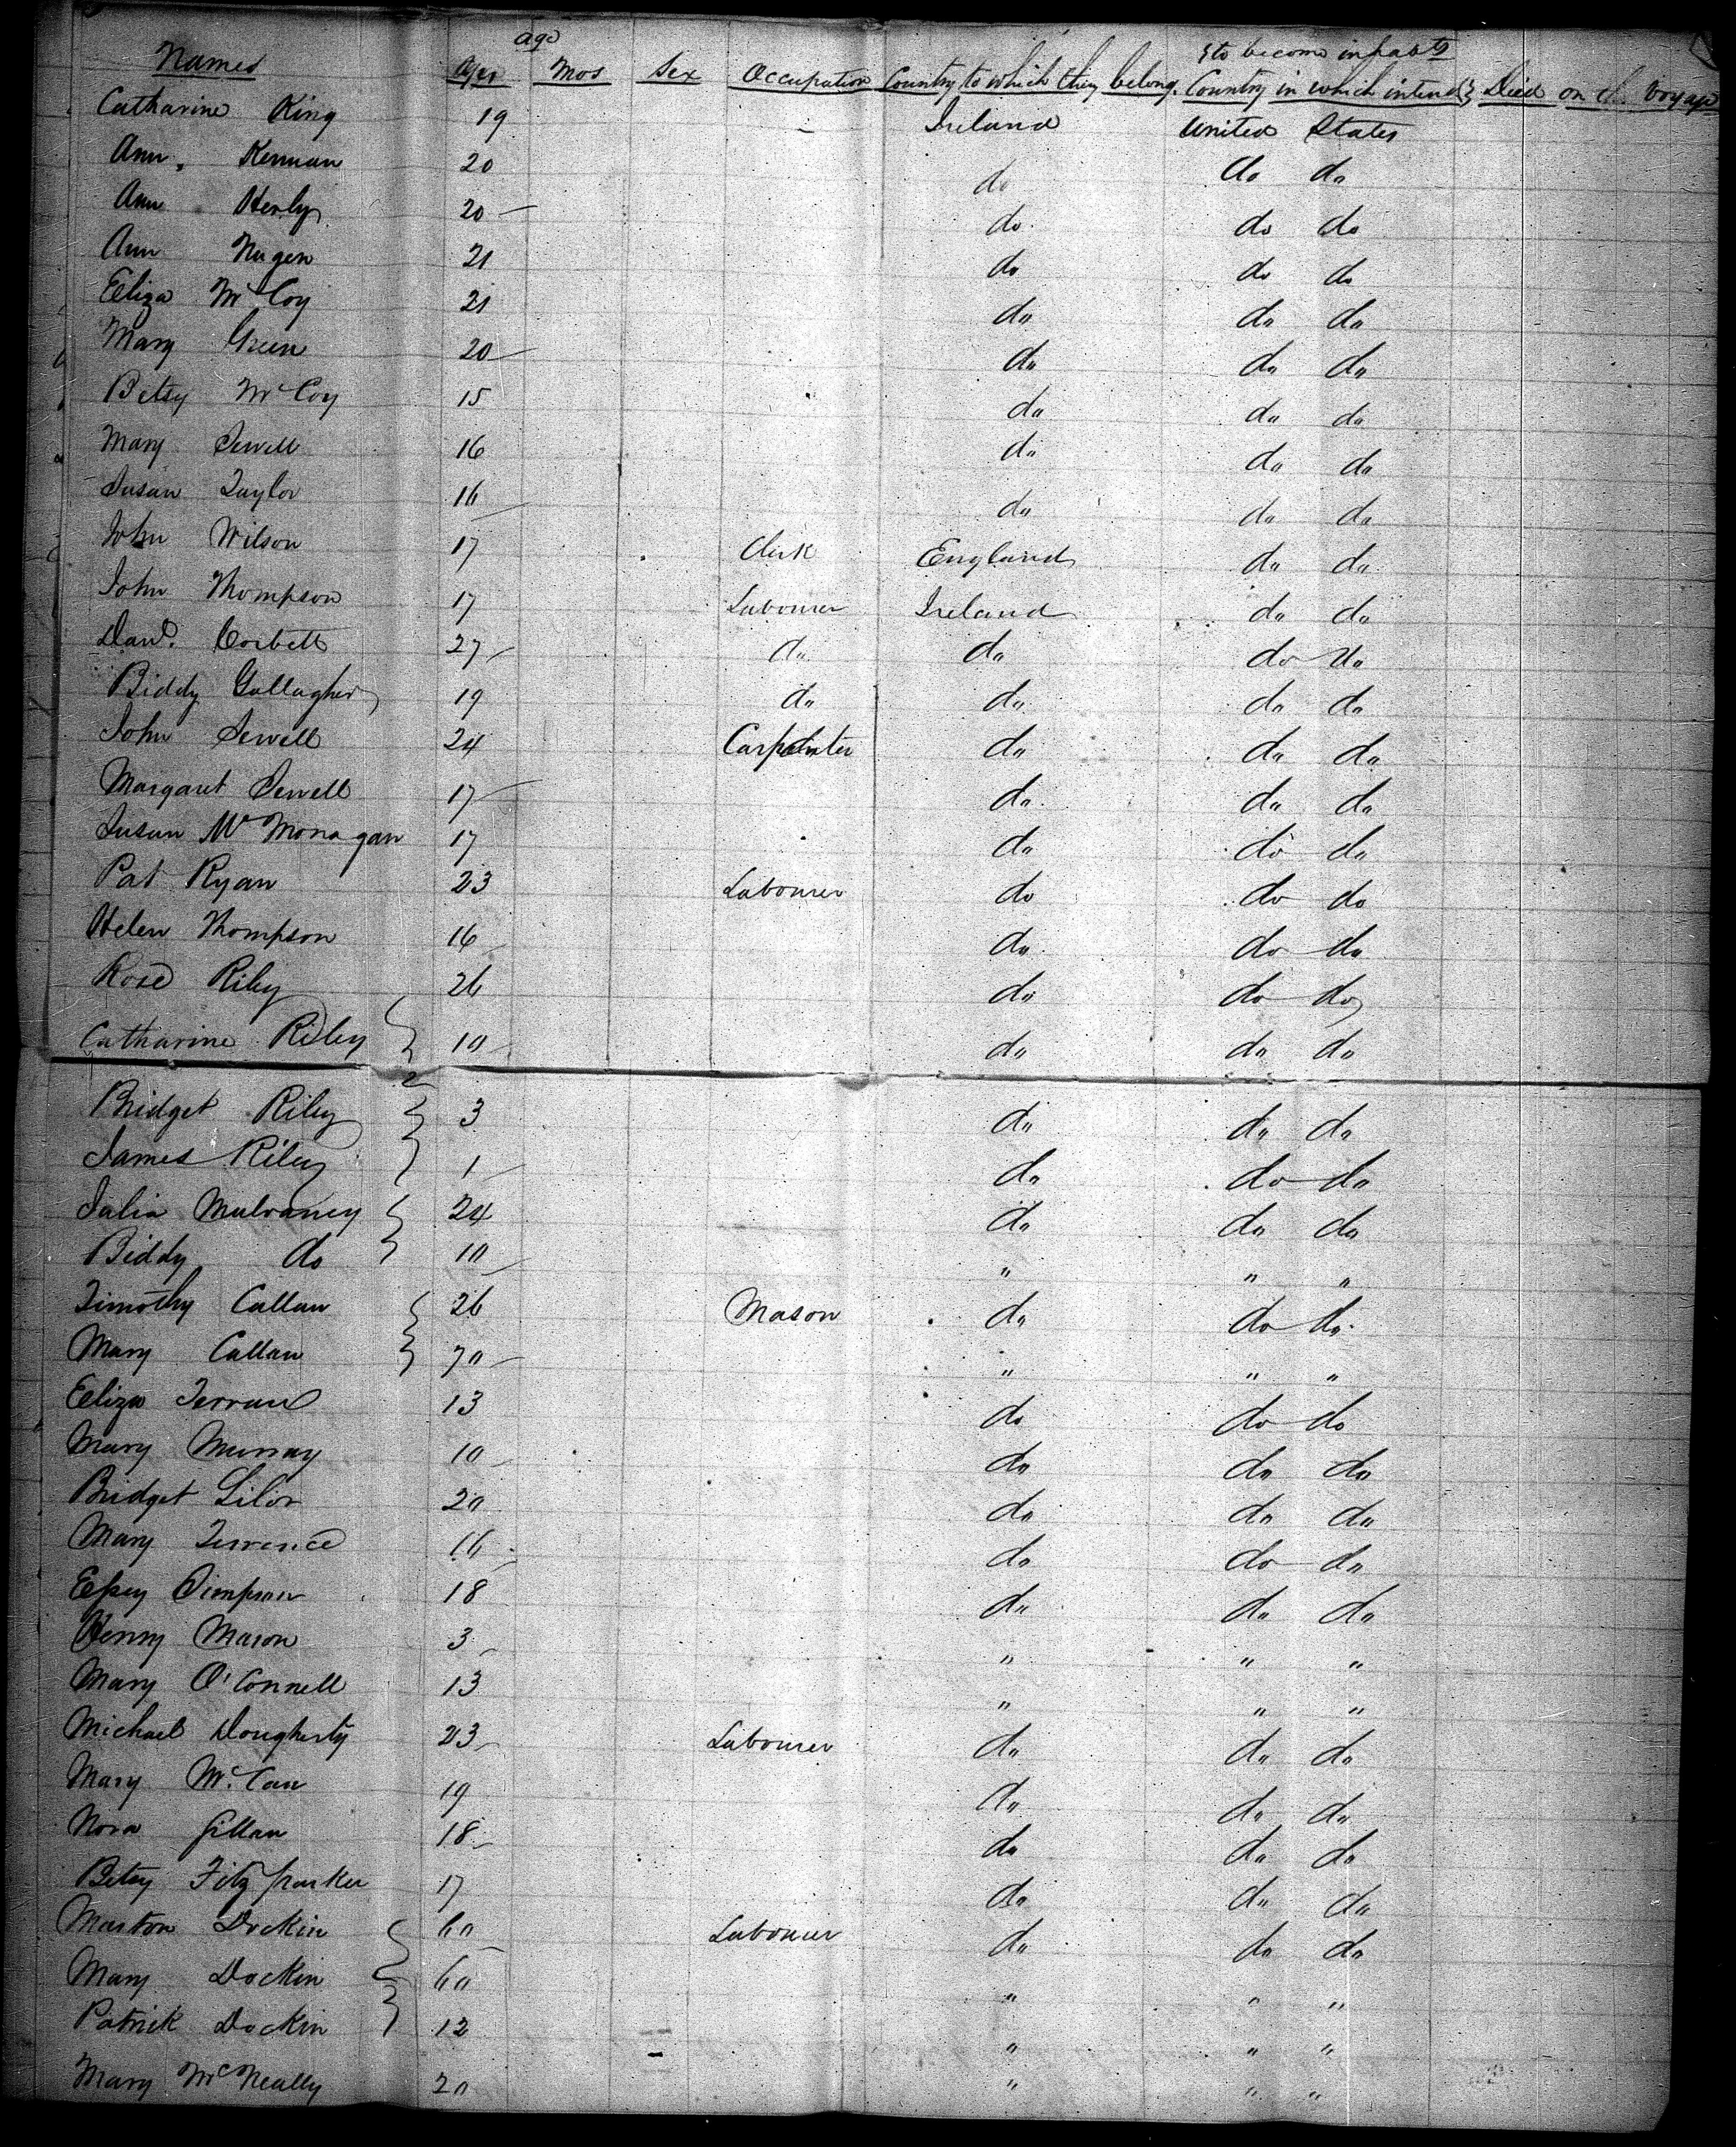 age
{to become inhabts
Names Yrs Mos Sex Occupation Country to which they belong. Country in which intend} Died on the Voyage
Catharine King 19 Ireland United States
Ann Kernan 20 do do do
Ann Henly 20 do do do
Ann Nugen 21 do do do
Eliza McCoy 21 do do do
Mary Green 20 do do do
Betsy McCoy 15 do do do
Mary Sewell 16 do do do
Susan Taylor 16 do do do
John Wilson 17 Clerk England do do
John Thompson 17 Labourer Ireland do do
Danl. Corbett 27 do do do do
Biddy Gallagher 19 do do do do
John Sewell 24 Carpenter do do do
Margaret Sewell 17 do do do
Susan McMonagan 17 do do do
Pat Ryan 23 Labourer do do do
Helen Thompson 16 do do do
Rose Riley 26 do do do
Catharine Riley 10 do do do
Bridget Riley 3 do do do
James Riley 1 do do do
Julia Mulvaney 24 do do do
Biddy do 10 " " "
Timothy Callan 26 Mason do do do
Mary Callan 70 " " "
Eliza 13 do do do
Mary Murray 10 do do do
Bridget 20 do do do
Mary Terrence 16 do do do
Essey Simpson 18 do do do
Henry Mason 3 " " "
Mary O'Connell 13 " " "
Michael Dougherty 23 Labourer do do do
Mary McCan 19 do do do
Nora Gillan 18 do do do
Betsy Fitzparker 17 do do do
Marton Dockin 60 Labourer do do do
Mary Dockin 60 " " "
Patrick Dockin 12 " " "
Mary McNeally 20 " " "